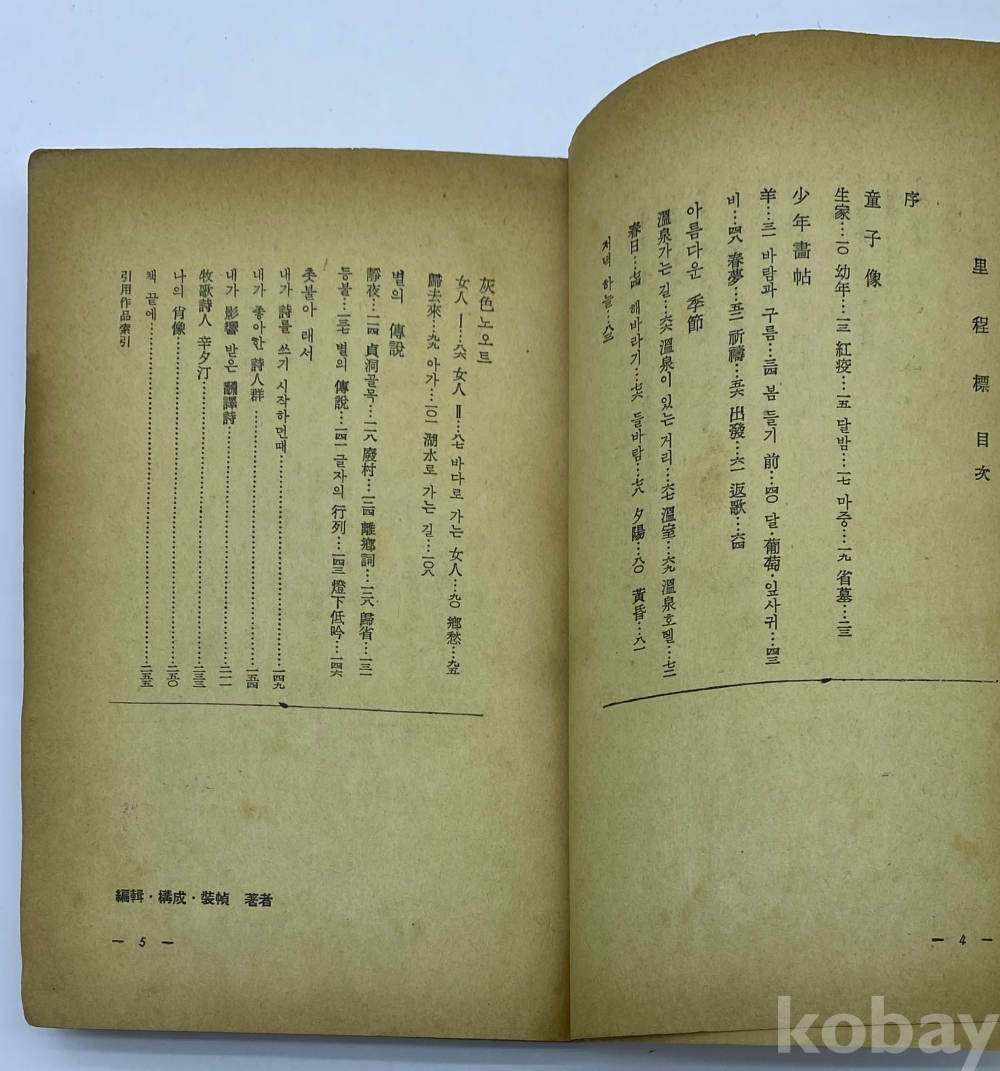 里程標目次
序
童子像
生家…一〇 幼年…一三 紅疫…一五 달밤…一七 마중…一九 省墓…二三
少年畫帖
羊…三一 바람과 구름…三四 봄 들기 前…四〇 달·葡萄·잎사귀…四三
비…四八 春夢…五二 祈禱…五六 出發…六一 返歌…六四
아름다운 季節
溫泉가는 길…六六 溫泉이 있는 거리…六七 溫室…六九 溫泉호텔…七二
春日…七四 해바라기…七六 들바람…七八 夕陽…八〇 黃昏…八一
저녁 하늘…八三
— 4 —
灰色노오트
女人 Ⅰ…八六 女人 Ⅱ…八七 바다로 가는 女人…九〇 鄕愁…九五
歸去來…九九 아가…一〇一 湖水로 가는 길…一〇八
별의 傳說
靜夜…一一四 貞洞골목…一一八 廢村…一二四 離鄕詞…一二八 歸省…一三一
등불…一三七 별의 傳說…一四一 글자의 行列…一四三 燈下低吟…一四六
촛불아 래서
내가 詩를 쓰기 시작하던때…一四九
내가 좋아한 詩人群…一五四
내가 影響 받은 飜譯詩…二一一
牧歌詩人 辛夕汀…二三三
나의 肖像…二五〇
책 끝에…二五五
引用作品索引
編輯·構成·裝幀 著者
— 5 —
kobay